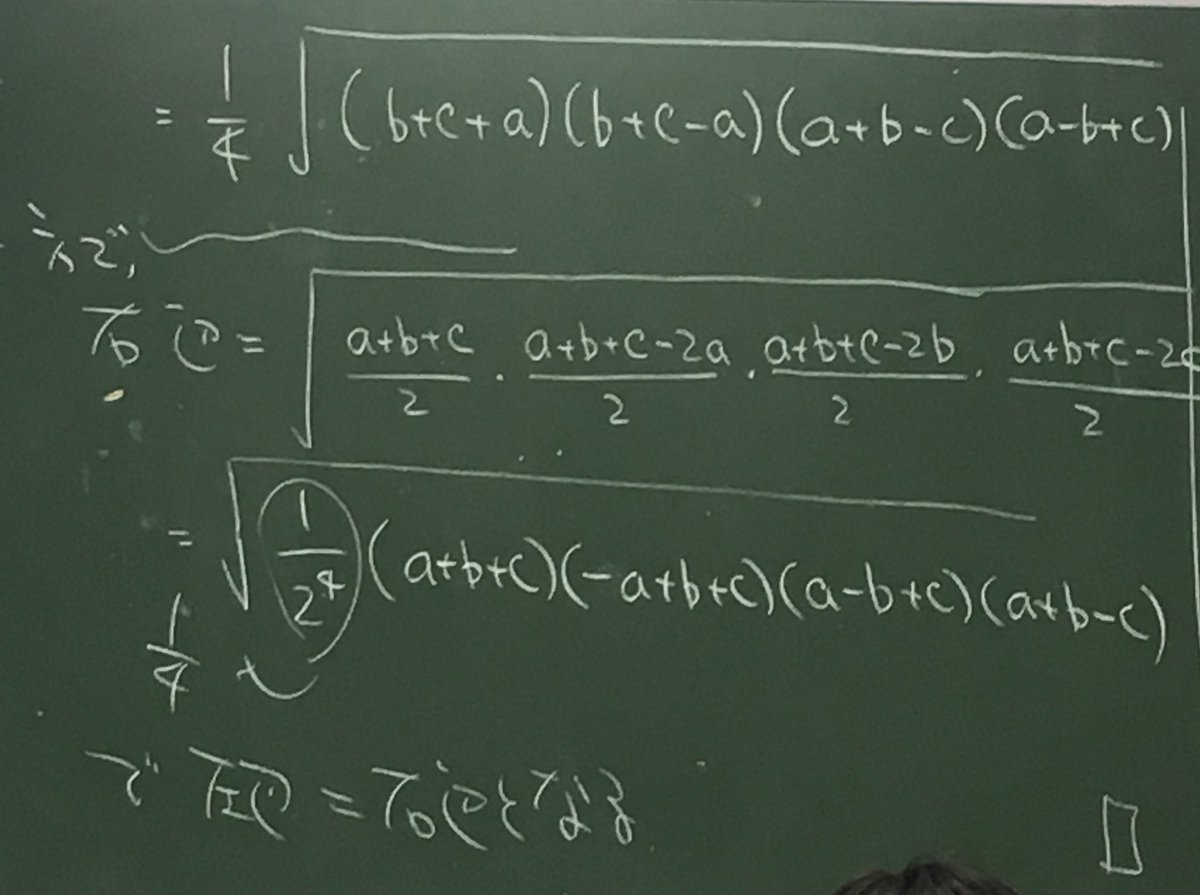 = 1/4 √(b+c+a)(b+c-a)(a+b-c)(a-b+c)
で,
右辺 = √a+b+c/2 · a+b+c-2a/2 · a+b+c-2b/2 · a+b+c-2c/2
= √1/2⁴ (a+b+c)(-a+b+c)(a-b+c)(a+b-c)
1/4
で 左辺 = 右辺となる
□